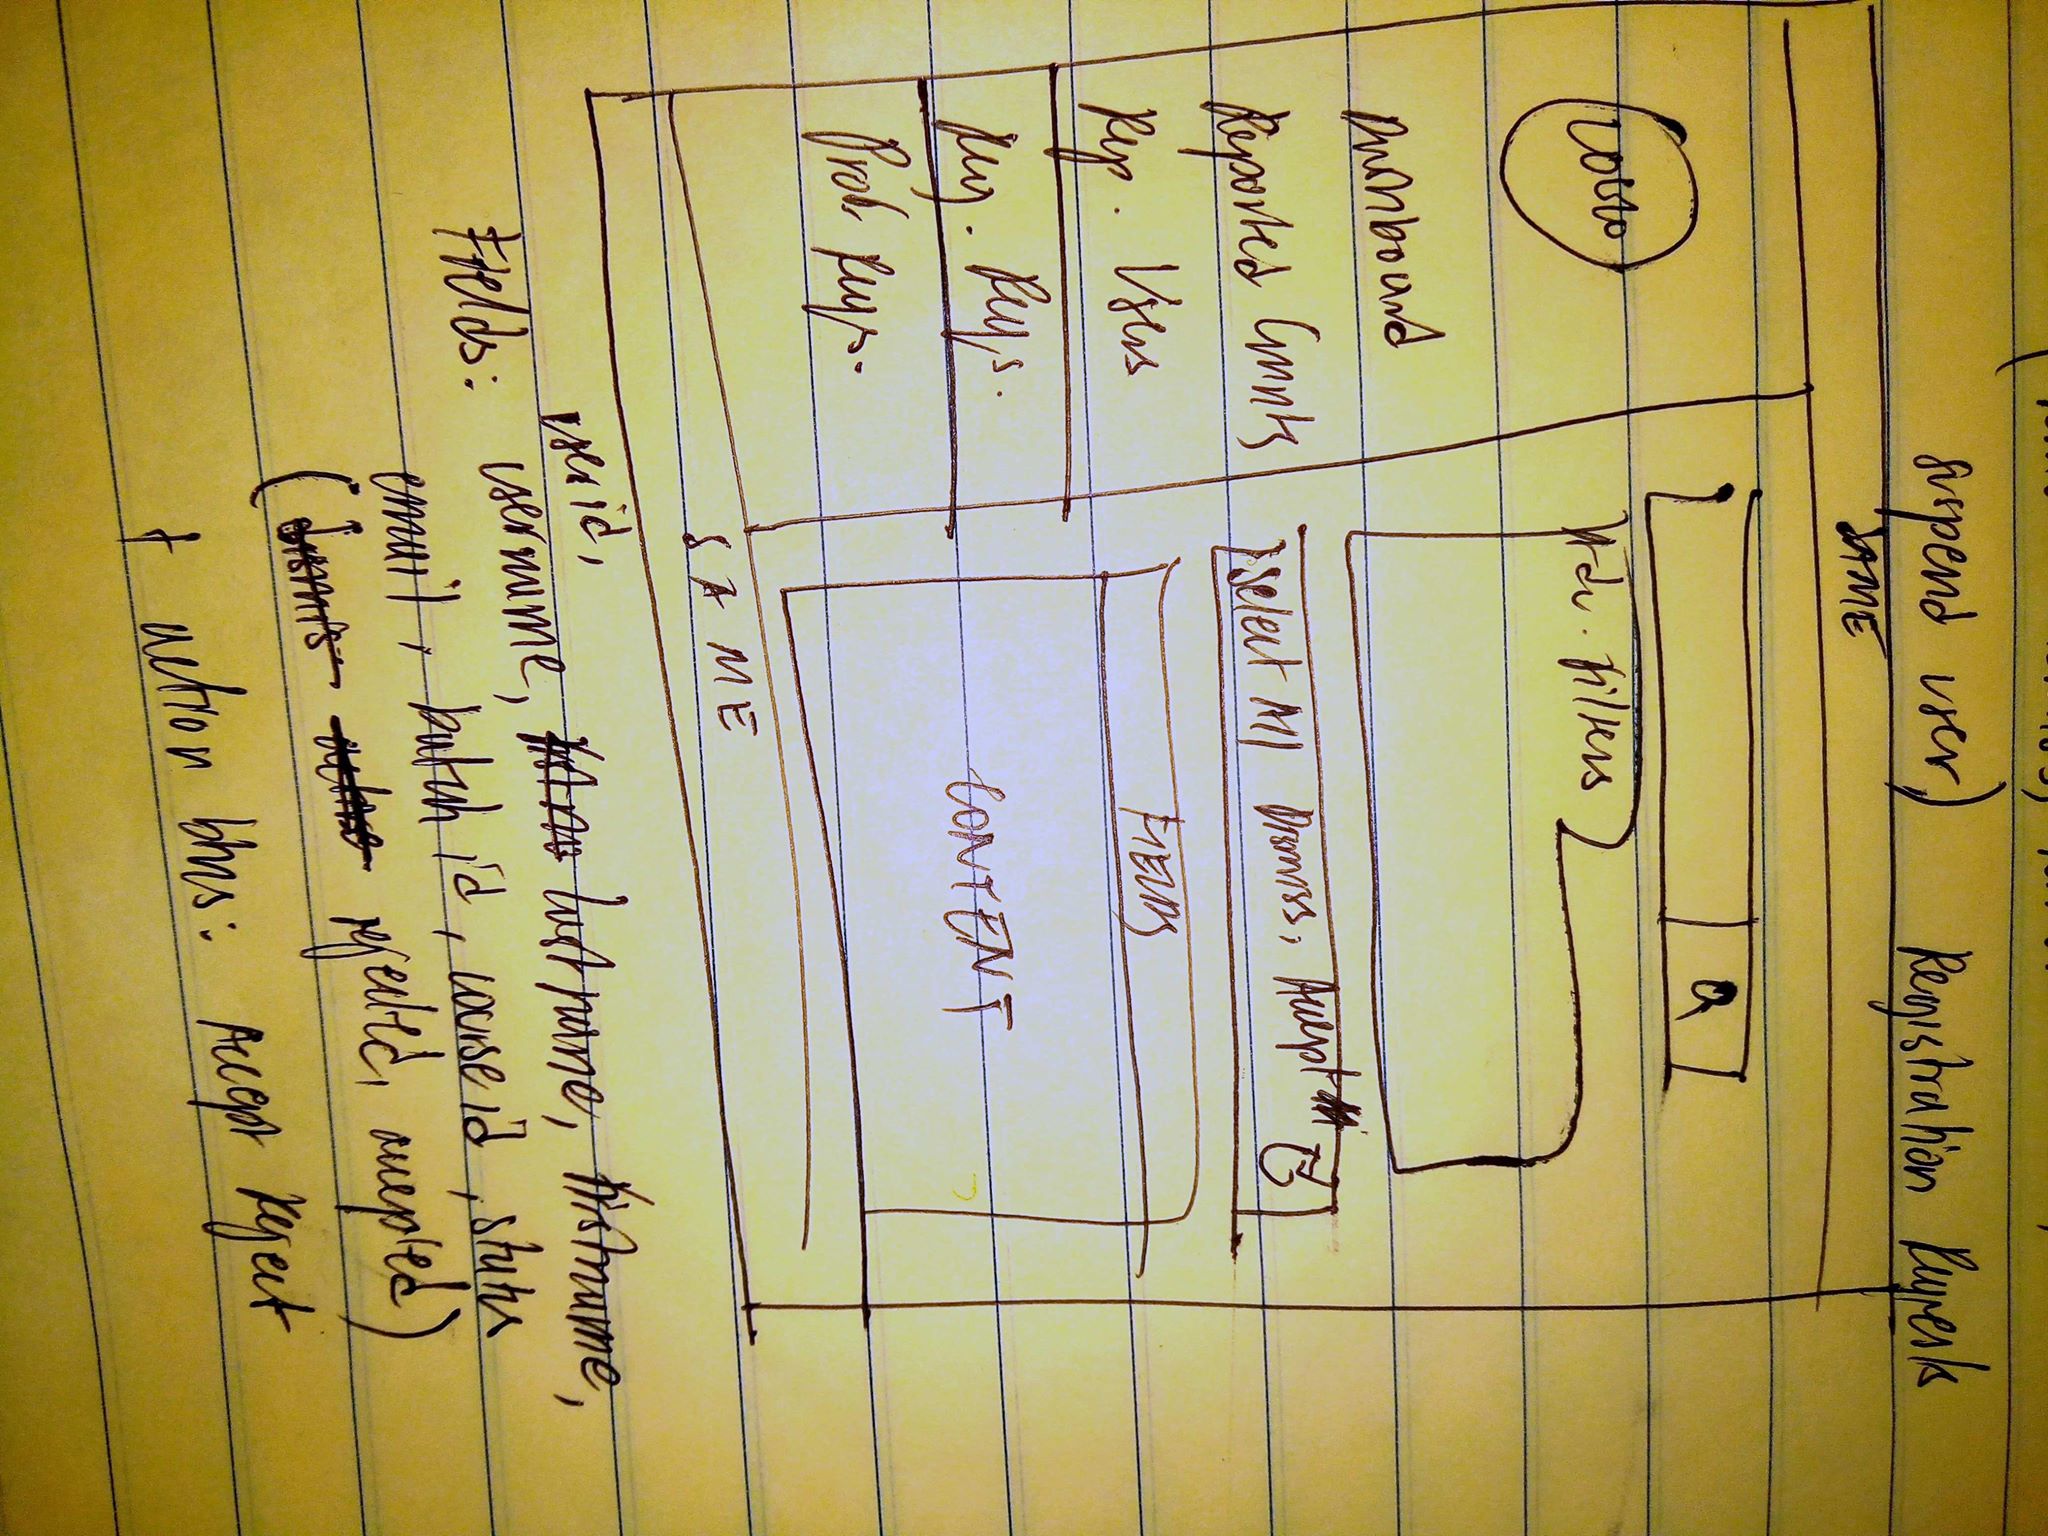 suspend user) Registration Requests
SAME
LOGO
Adv. Filters
Dashboard
Reported Cmnts
Rep. Users
Reg. Reqs.
Prob Reqs.
Select All Dismiss, Accept
FIELDS
CONTENT
SAME
user id,
Fields: username, last name, firstname,
email, batch id, course id, status
(rejected, accepted)
+ action btns: Accept Reject